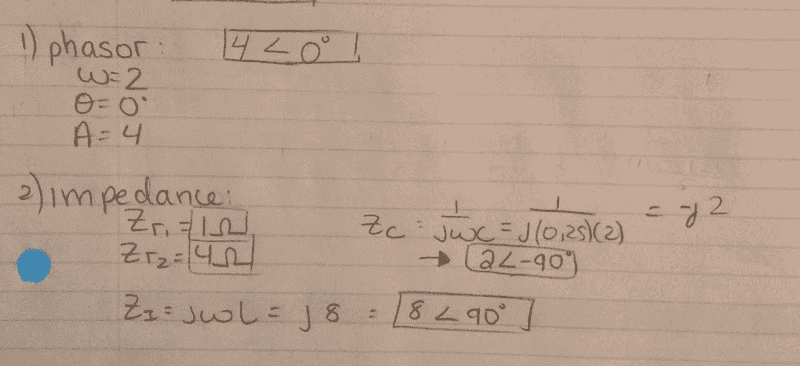 1) phasor: 4 ∠ 0°
ω=2
θ=0°
A=4
2) impedance:
Zr₁ = 1Ω
Zr₂ = 4Ω
Zc = 1/jωc = 1/j(0,25)(2) = -j2
→ 2∠-90°
ZI = jωL = j8 = 8∠90°